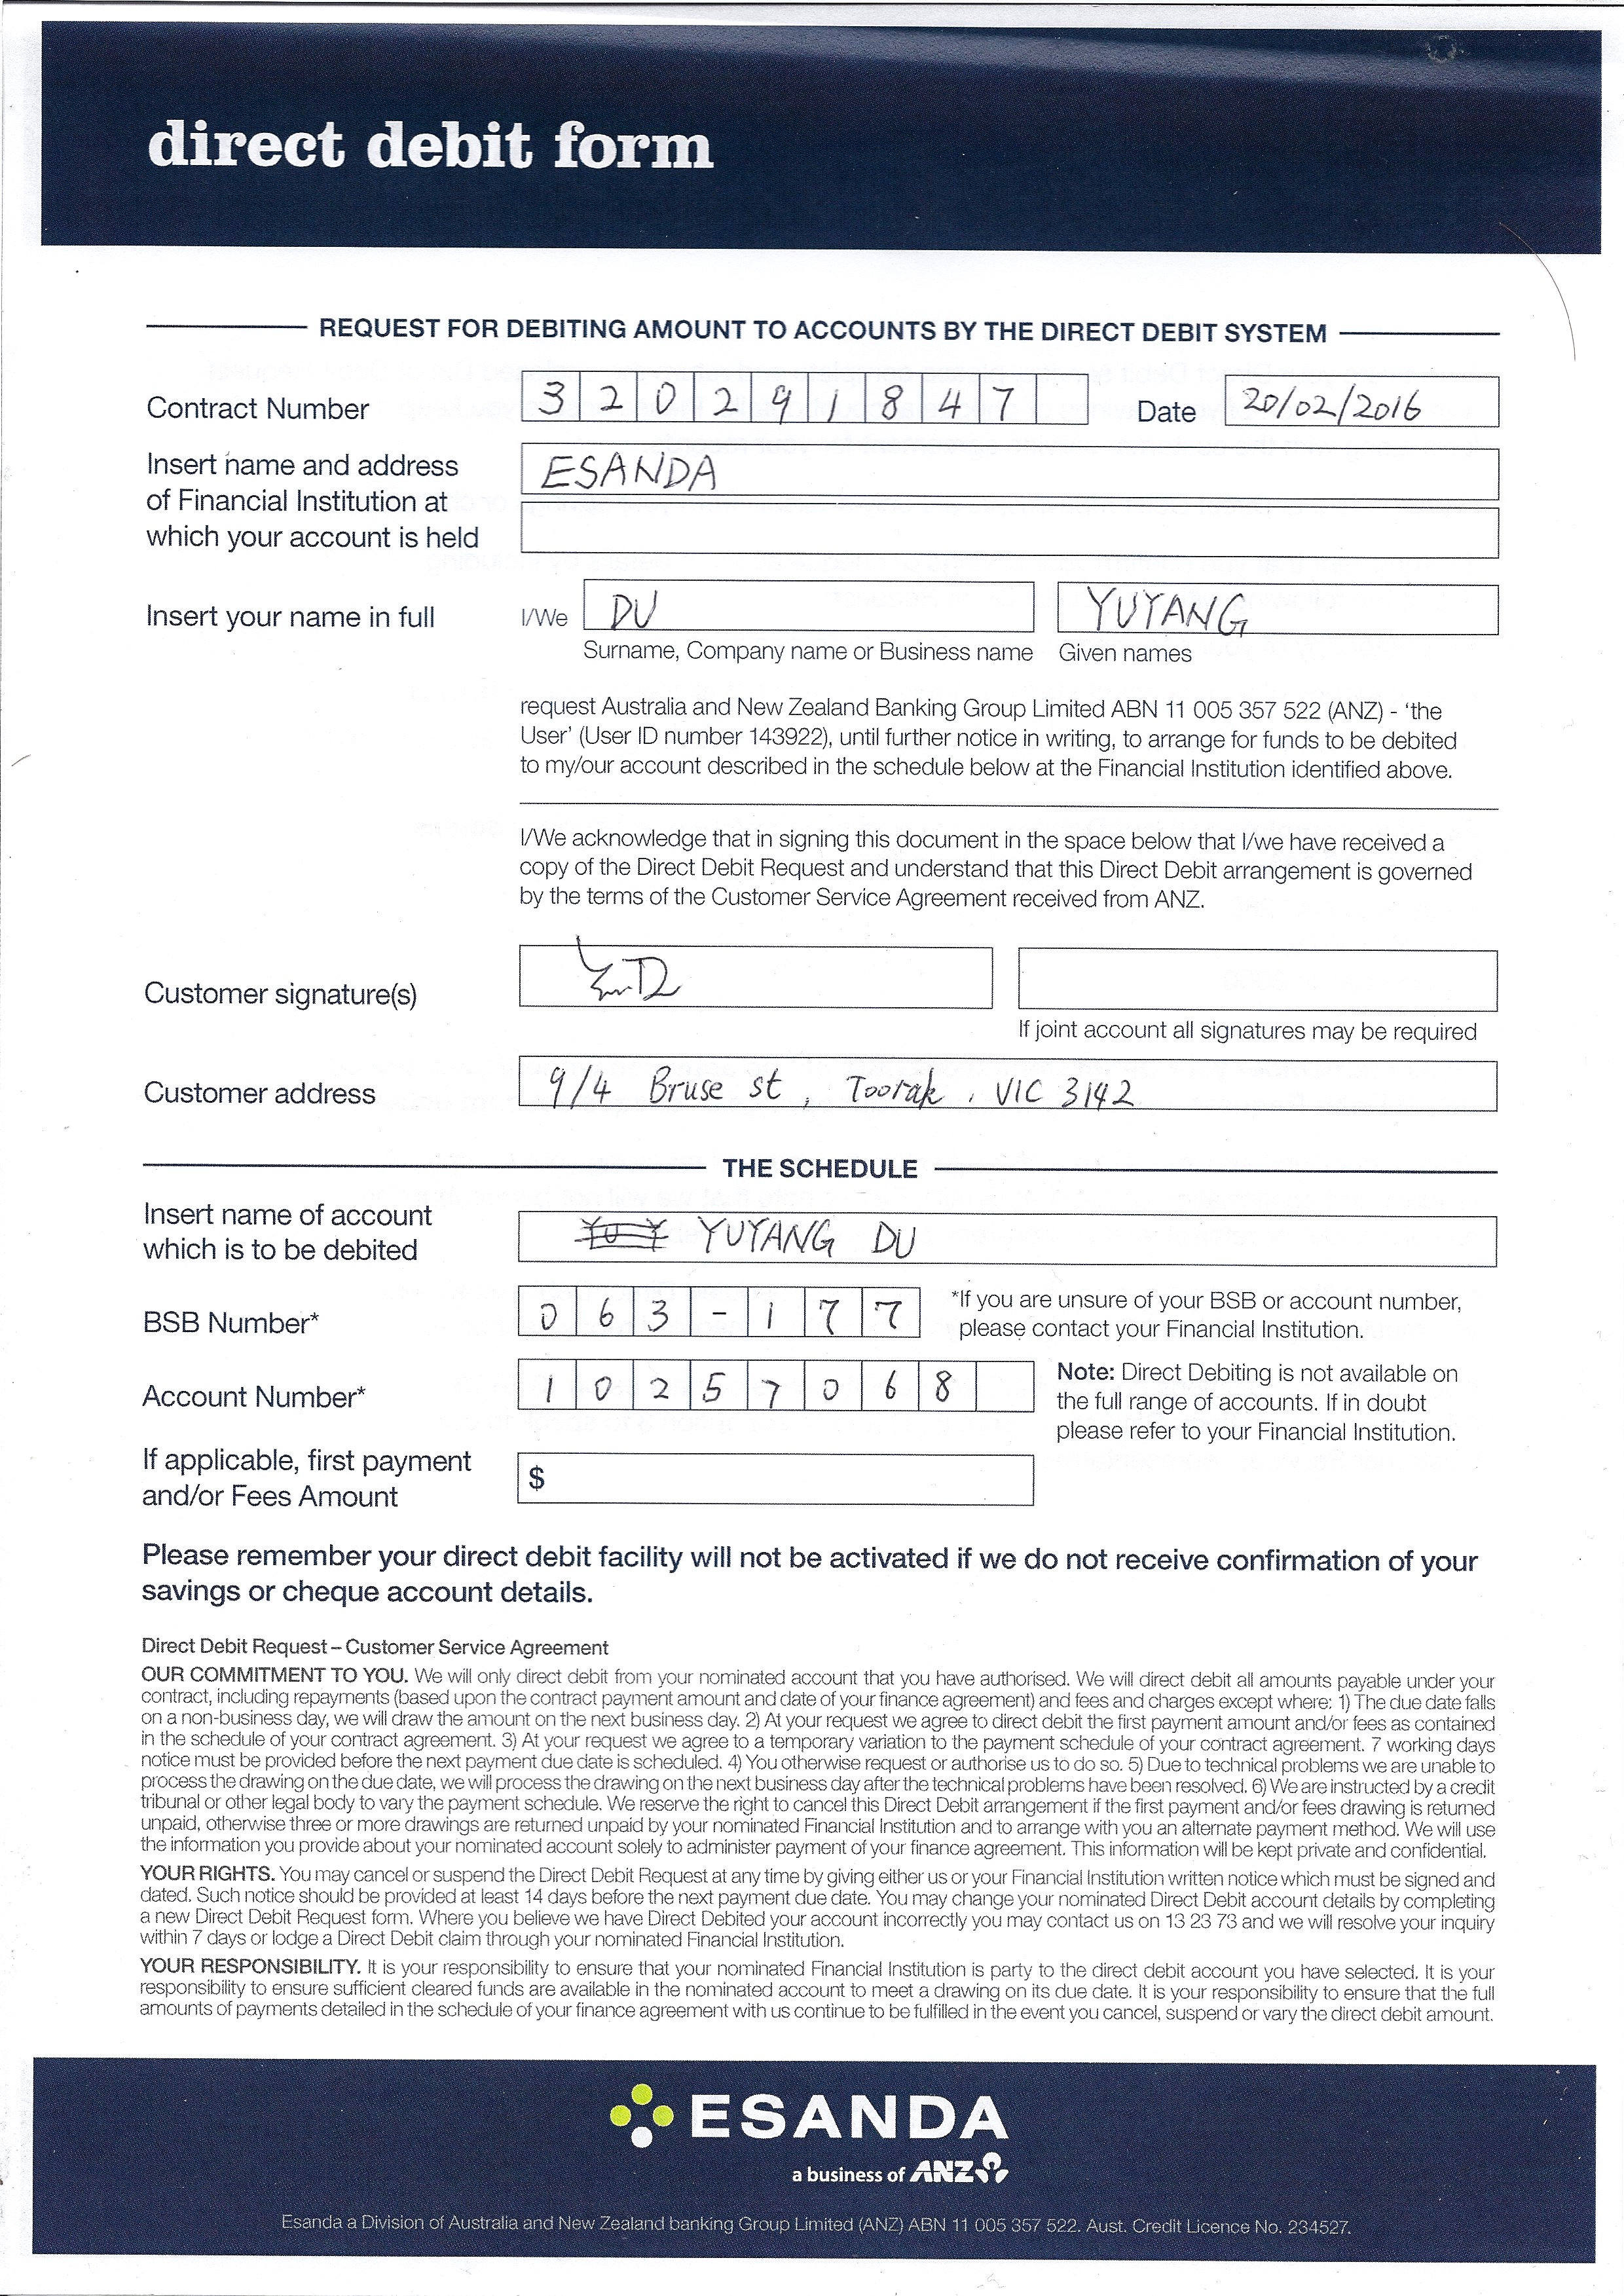 direct debit form
REQUEST FOR DEBITING AMOUNT TO ACCOUNTS BY THE DIRECT DEBIT SYSTEM
Contract Number 3 2 0 2 9 1 8 4 7 Date 20/02/2016
Insert name and address
of Financial Institution at
which your account is held
ESANDA
Insert your name in full I/We DU YUYANG
Surname, Company name or Business name Given names
request Australia and New Zealand Banking Group Limited ABN 11 005 357 522 (ANZ) - ‘the
User’ (User ID number 143922), until further notice in writing, to arrange for funds to be debited
to my/our account described in the schedule below at the Financial Institution identified above.
I/We acknowledge that in signing this document in the space below that I/we have received a
copy of the Direct Debit Request and understand that this Direct Debit arrangement is governed
by the terms of the Customer Service Agreement received from ANZ.
Customer signature(s)
If joint account all signatures may be required
Customer address 9/4 Bruse st, Toorak, VIC 3142
THE SCHEDULE
Insert name of account
which is to be debited
YUYANG DU
BSB Number* 0 6 3 - 1 7 7
*If you are unsure of your BSB or account number,
please contact your Financial Institution.
Account Number* 1 0 2 5 7 0 6 8
Note: Direct Debiting is not available on
the full range of accounts. If in doubt
please refer to your Financial Institution.
If applicable, first payment
and/or Fees Amount
$
Please remember your direct debit facility will not be activated if we do not receive confirmation of your
savings or cheque account details.
Direct Debit Request – Customer Service Agreement
OUR COMMITMENT TO YOU. We will only direct debit from your nominated account that you have authorised. We will direct debit all amounts payable under your
contract, including repayments (based upon the contract payment amount and date of your finance agreement) and fees and charges except where: 1) The due date falls
on a non-business day, we will draw the amount on the next business day. 2) At your request we agree to direct debit the first payment amount and/or fees as contained
in the schedule of your contract agreement. 3) At your request we agree to a temporary variation to the payment schedule of your contract agreement. 7 working days
notice must be provided before the next payment due date is scheduled. 4) You otherwise request or authorise us to do so. 5) Due to technical problems we are unable to
process the drawing on the due date, we will process the drawing on the next business day after the technical problems have been resolved. 6) We are instructed by a credit
tribunal or other legal body to vary the payment schedule. We reserve the right to cancel this Direct Debit arrangement if the first payment and/or fees drawing is returned
unpaid, otherwise three or more drawings are returned unpaid by your nominated Financial Institution and to arrange with you an alternate payment method. We will use
the information you provide about your nominated account solely to administer payment of your finance agreement. This information will be kept private and confidential.
YOUR RIGHTS. You may cancel or suspend the Direct Debit Request at any time by giving either us or your Financial Institution written notice which must be signed and
dated. Such notice should be provided at least 14 days before the next payment due date. You may change your nominated Direct Debit account details by completing
a new Direct Debit Request form. Where you believe we have Direct Debited your account incorrectly you may contact us on 13 23 73 and we will resolve your inquiry
within 7 days or lodge a Direct Debit claim through your nominated Financial Institution.
YOUR RESPONSIBILITY. It is your responsibility to ensure that your nominated Financial Institution is party to the direct debit account you have selected. It is your
responsibility to ensure sufficient cleared funds are available in the nominated account to meet a drawing on its due date. It is your responsibility to ensure that the full
amounts of payments detailed in the schedule of your finance agreement with us continue to be fulfilled in the event you cancel, suspend or vary the direct debit amount.
ESANDA
a business of ANZ
Esanda a Division of Australia and New Zealand banking Group Limited (ANZ) ABN 11 005 357 522. Aust. Credit Licence No. 234527.